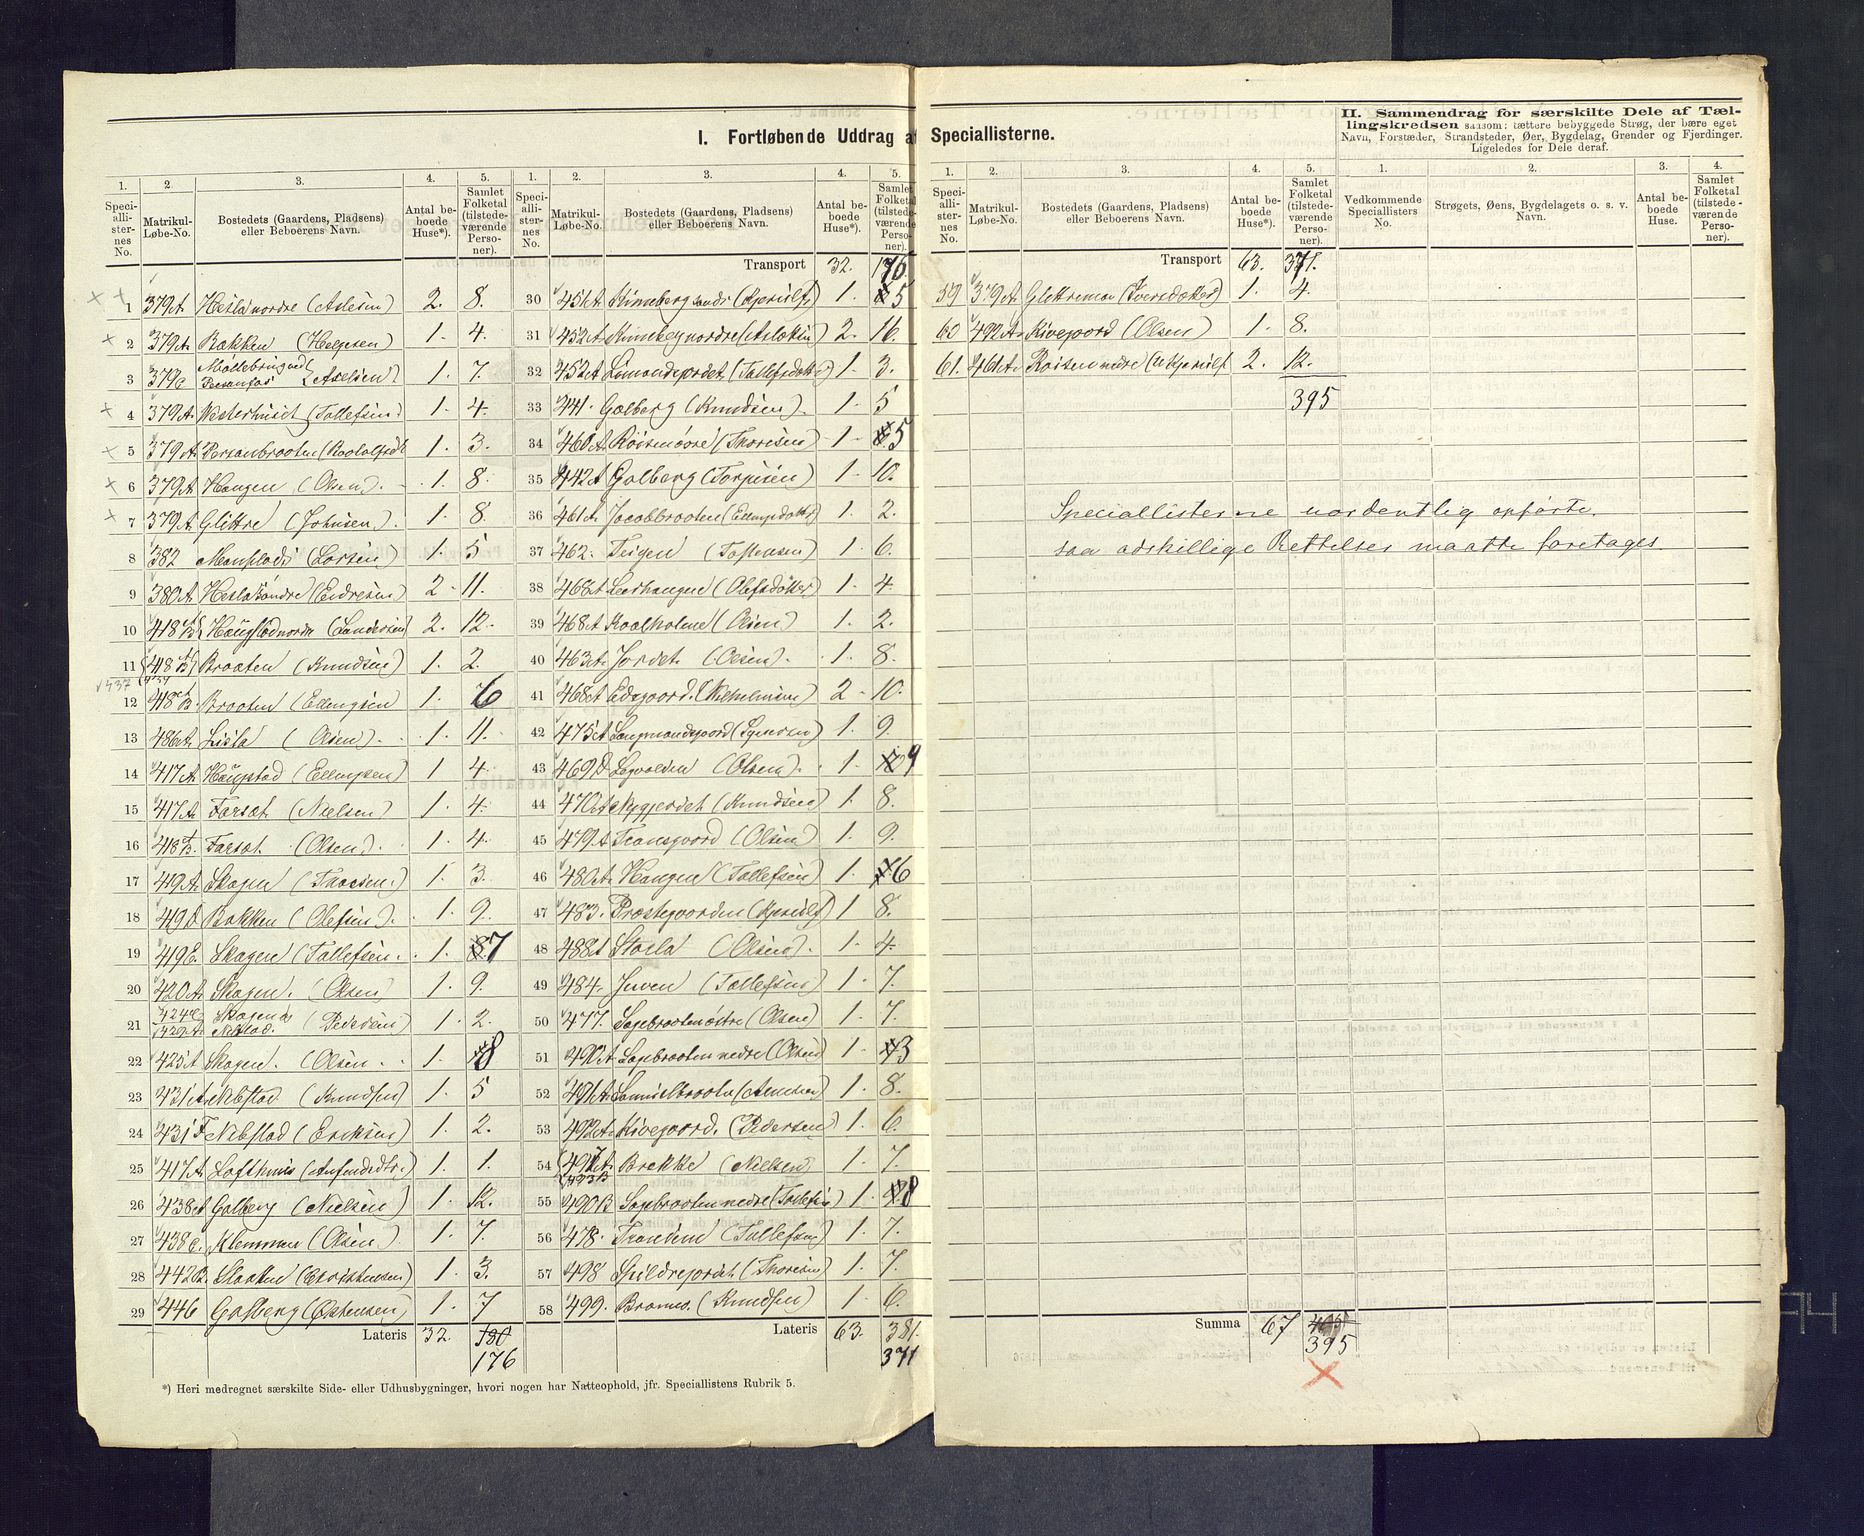 I. Fortløbende Uddrag af Speciallisterne.
II. Sammendrag for særskilte Dele af Tæl-
lingskredsen saasom: tættere bebyggede Strøg, der bære eget
Navn, Forstæder, Strandsteder, Øer, Bygdelag, Grender og Fjerdinger.
Ligeledes for Dele deraf.
1. 2. 3. 4. 5. 1. 2. 3. 4. 5.
Speciallisternes No. Matrikul-Løbe-No. Bostedets (Gaardens, Pladsens) eller Beboerens Navn. Antal beboede Huse*). Samlet Folketal (tilstedeværende Personer).
Transport 32. 176
1 379A Hesla nordre (Aslesen) 2. 8.
2 379A Bakken (Helgesen) 1. 4.
3 379C (Axelsen) 1. 7.
4 379A Vesterhuset (Tollefsen) 1. 4.
5 379A Persanbraaten 1. 3.
6 379A Haugen (Olsen). 1. 8.
7 379A Glittre (Johnsen). 1. 8.
8 382 (Larsen) 1. 5
9 380A Hesla søndre (Endresen) 2 11.
10 418 Haugstad nordre (Sandersen) 2. 12.
11 418 Braaten (Knudsen) 1. 2.
12 418 Braaten (Ellingsen 1. 6
13 486A Lisla (Olsen). 1. 11.
14 417A Haugstad (Ellingsen) 1 4.
15 417A Farsæt (Nielsen) 1. 4.
16 418 Farsæt (Olsen). 1. 4
17 419A Skogen 1. 3.
18 419D Bakken (Olefsen). 1. 9.
19 419E. Skogen (Tollefsen. 1. 7
20 420A Skogen. (Olsen) 1. 9.
21 424C Skogen Nebstad. (Pedersen) 1. 2.
22 425A Skogen. (Olsen. 1. 8
23 431A Nebstad (Knudsen) 1. 5
24 431F Nebstad (Eriksen) 1. 2.
25 417A Lofthuus 1. 1.
26 438A Golberg (Nielsen) 1. 12.
27 438C. Klemmen (Olsen) 1. 7.
28 442B. Staaten (Christensen) 1. 3.
29 446 Golberg (Østensen) 1. 7
Lateris 32. 180
176
30 451A Kinneberg søndr (Kjerulf) 1. 5
31 452A Kinneberg nordre (Aslaksen) 2. 16.
32 452A (Tollefsdatter) 1. 3.
33 441. Golberg (Knudsen). 1. 5
34 460A Roismoore (Thoresen) 1. 5
35 442A Golberg (Torgersen) 1. 10.
36 461A Jacobbraaten (Ellingsdatter) 1. 2.
37 462. Teigen (Tostensen) 1. 6.
38 468A Leerhaugen (Olefsdatter) 1. 4.
39 468A Kaalholene (Olsen) 1. 2.
40 463A Jordet (Olsen). 1. 8.
41 468A Eidsgaard. (Vilhelmsen) 2 10.
42 475A 1. 9.
43 469D (Olsen). 1. 9
44 470A (Knudsen) 1. 8.
45 479A Transgaard (Olsen) 1. 9.
46 480A Haugen (Tollefsen) 1. 6
47 483. Præstegaarden (Kjerulf) 1 8.
48 488A Storla (Olsen). 1. 4
49 484. Juven (Tollefsen) 1. 7.
50 477. Sagbraaten østre (Olsen) 1. 7.
51 490A Sagbraaten nedre (Olsen) 1. 3
52 491A Samuelbraaten 1. 8.
53 492A Kirkegaard. (Pedersen) 1. 6.
54 Brekke (Nielsen) 1. 7.
493B
55 490B Sagbraaten nedre (Tollefsen) 1. 8
56 478. (Tollefsen) 1. 7.
57 498 (Thoresen) 1. 7.
58 499. Bromoe. (Knudsen) 1. 6.
Lateris 63. 381.
371
*) Heri medregnet særskilte Side- eller Udhusbygninger, hvori nogen har Natteophold, jfr. Speciallistens Rubrik 5.
1. 2. 3. 4. 5. 1. 2. 3. 4.
Speciallisternes No. Matrikul-Løbe-No. Bostedets (Gaardens, Pladsens) eller Beboerens Navn. Antal beboede Huse*). Samlet Folketal (tilstedeværende Personer). Vedkommende Speciallisters No. Strøgets, Øens, Bygdelagets o. s. v. Navn. Antal beboede Huse. Samlet Folketal (tilstedeværende Personer).
Transport 63. 371.
59 379A Glittremoe (Iversdatter) 1. 4.
60 492A Kirkegaard (Olsen) 1. 8.
61. 461A Roisen nedre (Kjerulf 2. 12.
395
Speciallisterne uordentlig opførte.
saa adskillige Rettelser maatte foretages.
Summa 67 405
395